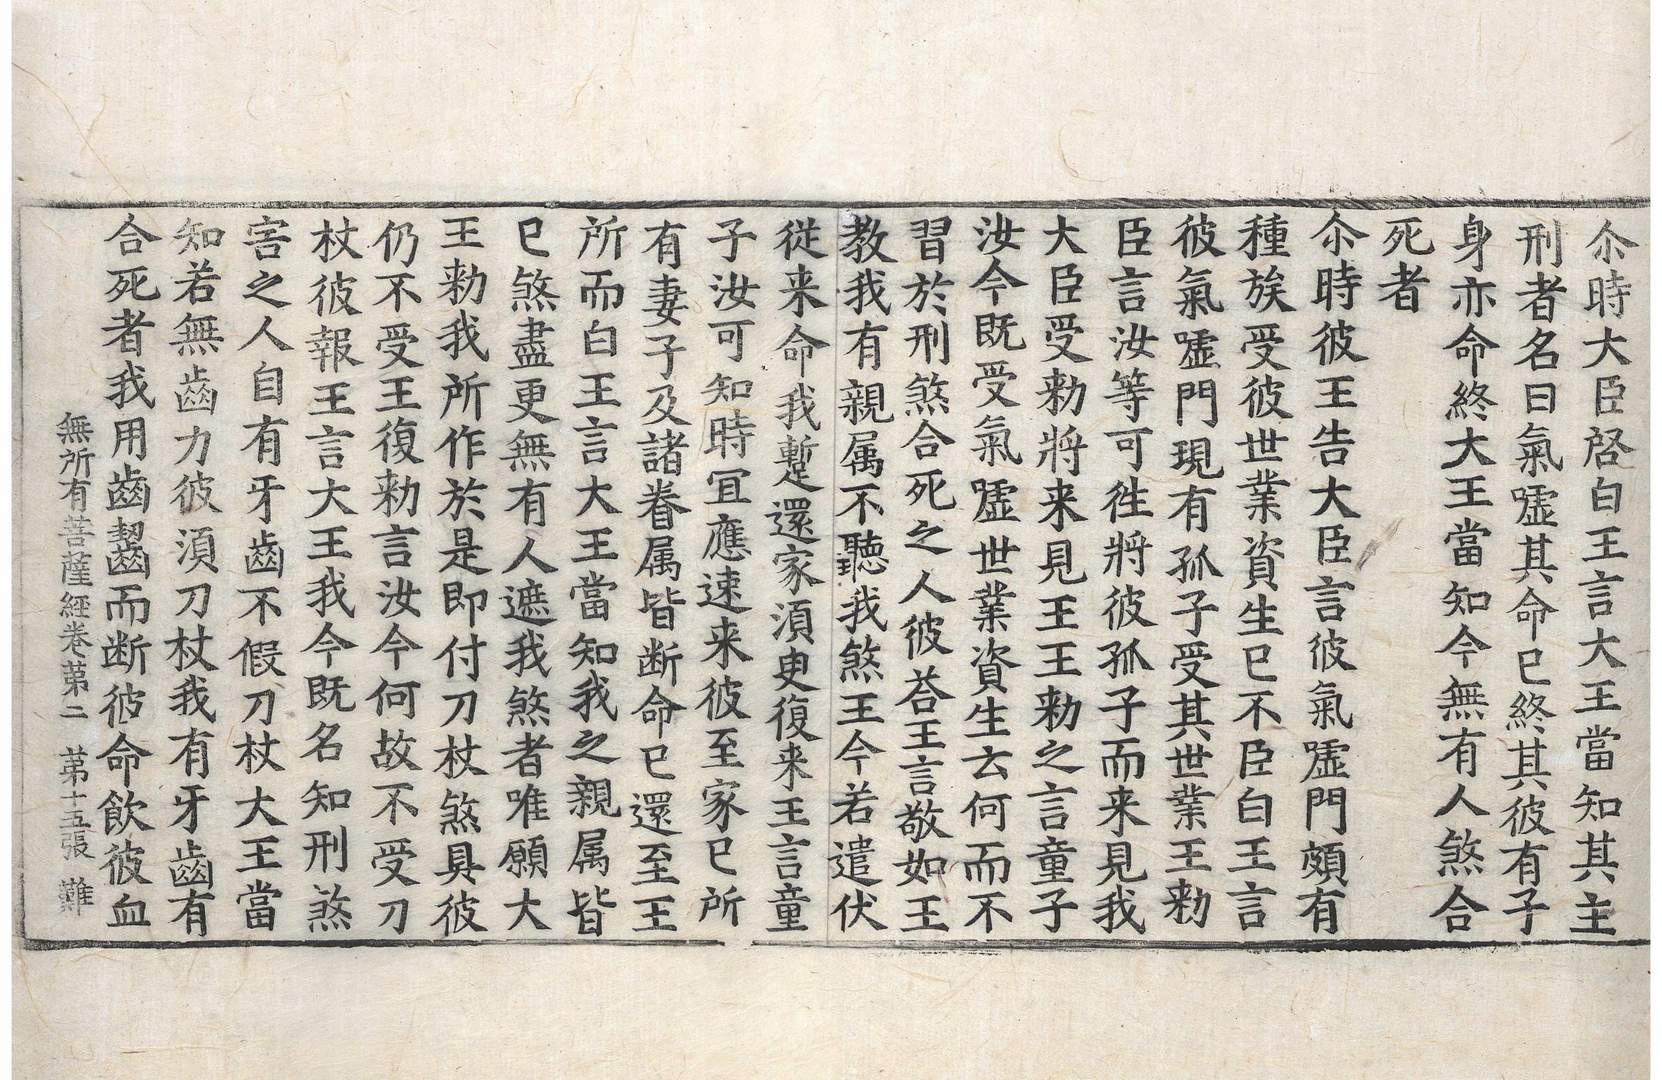 尒時大臣啓白王言大王當知其主
刑者名曰氣噓其命已終其彼有子
身亦命終大王當知今無有人煞合
死者
尒時彼王告大臣言彼氣噓門頗有
種族受彼世業資生已不臣白王言
彼氣噓門現有孤子受其世業王勑
臣言汝等可徃將彼孤子而来見我
大臣受勑將来見王王勑之言童子
汝今既受氣噓世業資生去何而不
習於刑煞合死之人彼荅王言敬如王
教我有親属不聽我煞王今若遣伏
從来命我蹔還家湏臾復来王言童
子汝可知時冝應速来彼至家已所
有妻子及諸眷属皆断命已還至王
所而白王言大王當知我之親属皆
已煞盡更無有人遮我煞者唯願大
王勑我所作於是即付刀杖煞具彼
仍不受王復勑言汝今何故不受刀
杖彼報王言大王我今既名知刑煞
害之人自有牙齒不假刀杖大王當
知若無齒力彼湏刀杖我有牙齒有
合死者我用齒齧而断彼命飲彼血
無所有菩薩經卷苐二　苐十五張　難